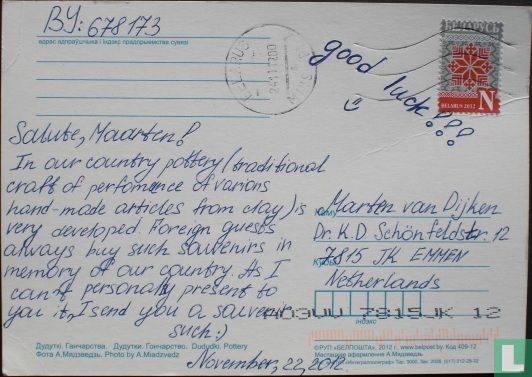 BY: 678173
адрас адпраўшчыка і індэкс прадпрыемства сувязі
BELARUS
24.11.12.00
MINSK
BELARUS
BELARUS 2012
N
good luck!!!
Salute, Maarten!
In our country pottery (traditional
craft of perfomance of varions
hand-made articles from clay) is
very developed. Foreign guests
always buy such souvenirs in
memory of our country. As I
can't personally present to
you it, I send you a souvenir
such:)
November, 22, 2012.
Каму
Marten van Dijken
Dr. K.D Schönfeldstr. 12
Куды
7815 JK EMMEN
Netherlands
7815JK 12
індэкс
Дудуткі. Ганчарства. Дудутки. Гончарство. Dududki. Pottery
Фота А.Мядзведзь. Photo by A.Miadzvedz
©РУП «БЕЛПОШТА», 2012 г. www.belpost.by. Код 409-12
Мастацкае афармленне А.Мядзведзь.